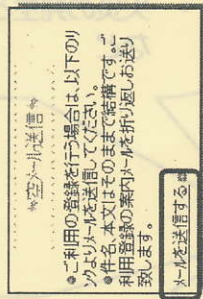 空メール送信
●ご利用の登録を行う場合は、以下のリ
ンクよりメールを送信してください。
●件名、本文はそのままで結構です。ご
利用登録の案内メールを折り返しお送り
致します。
メールを送信する